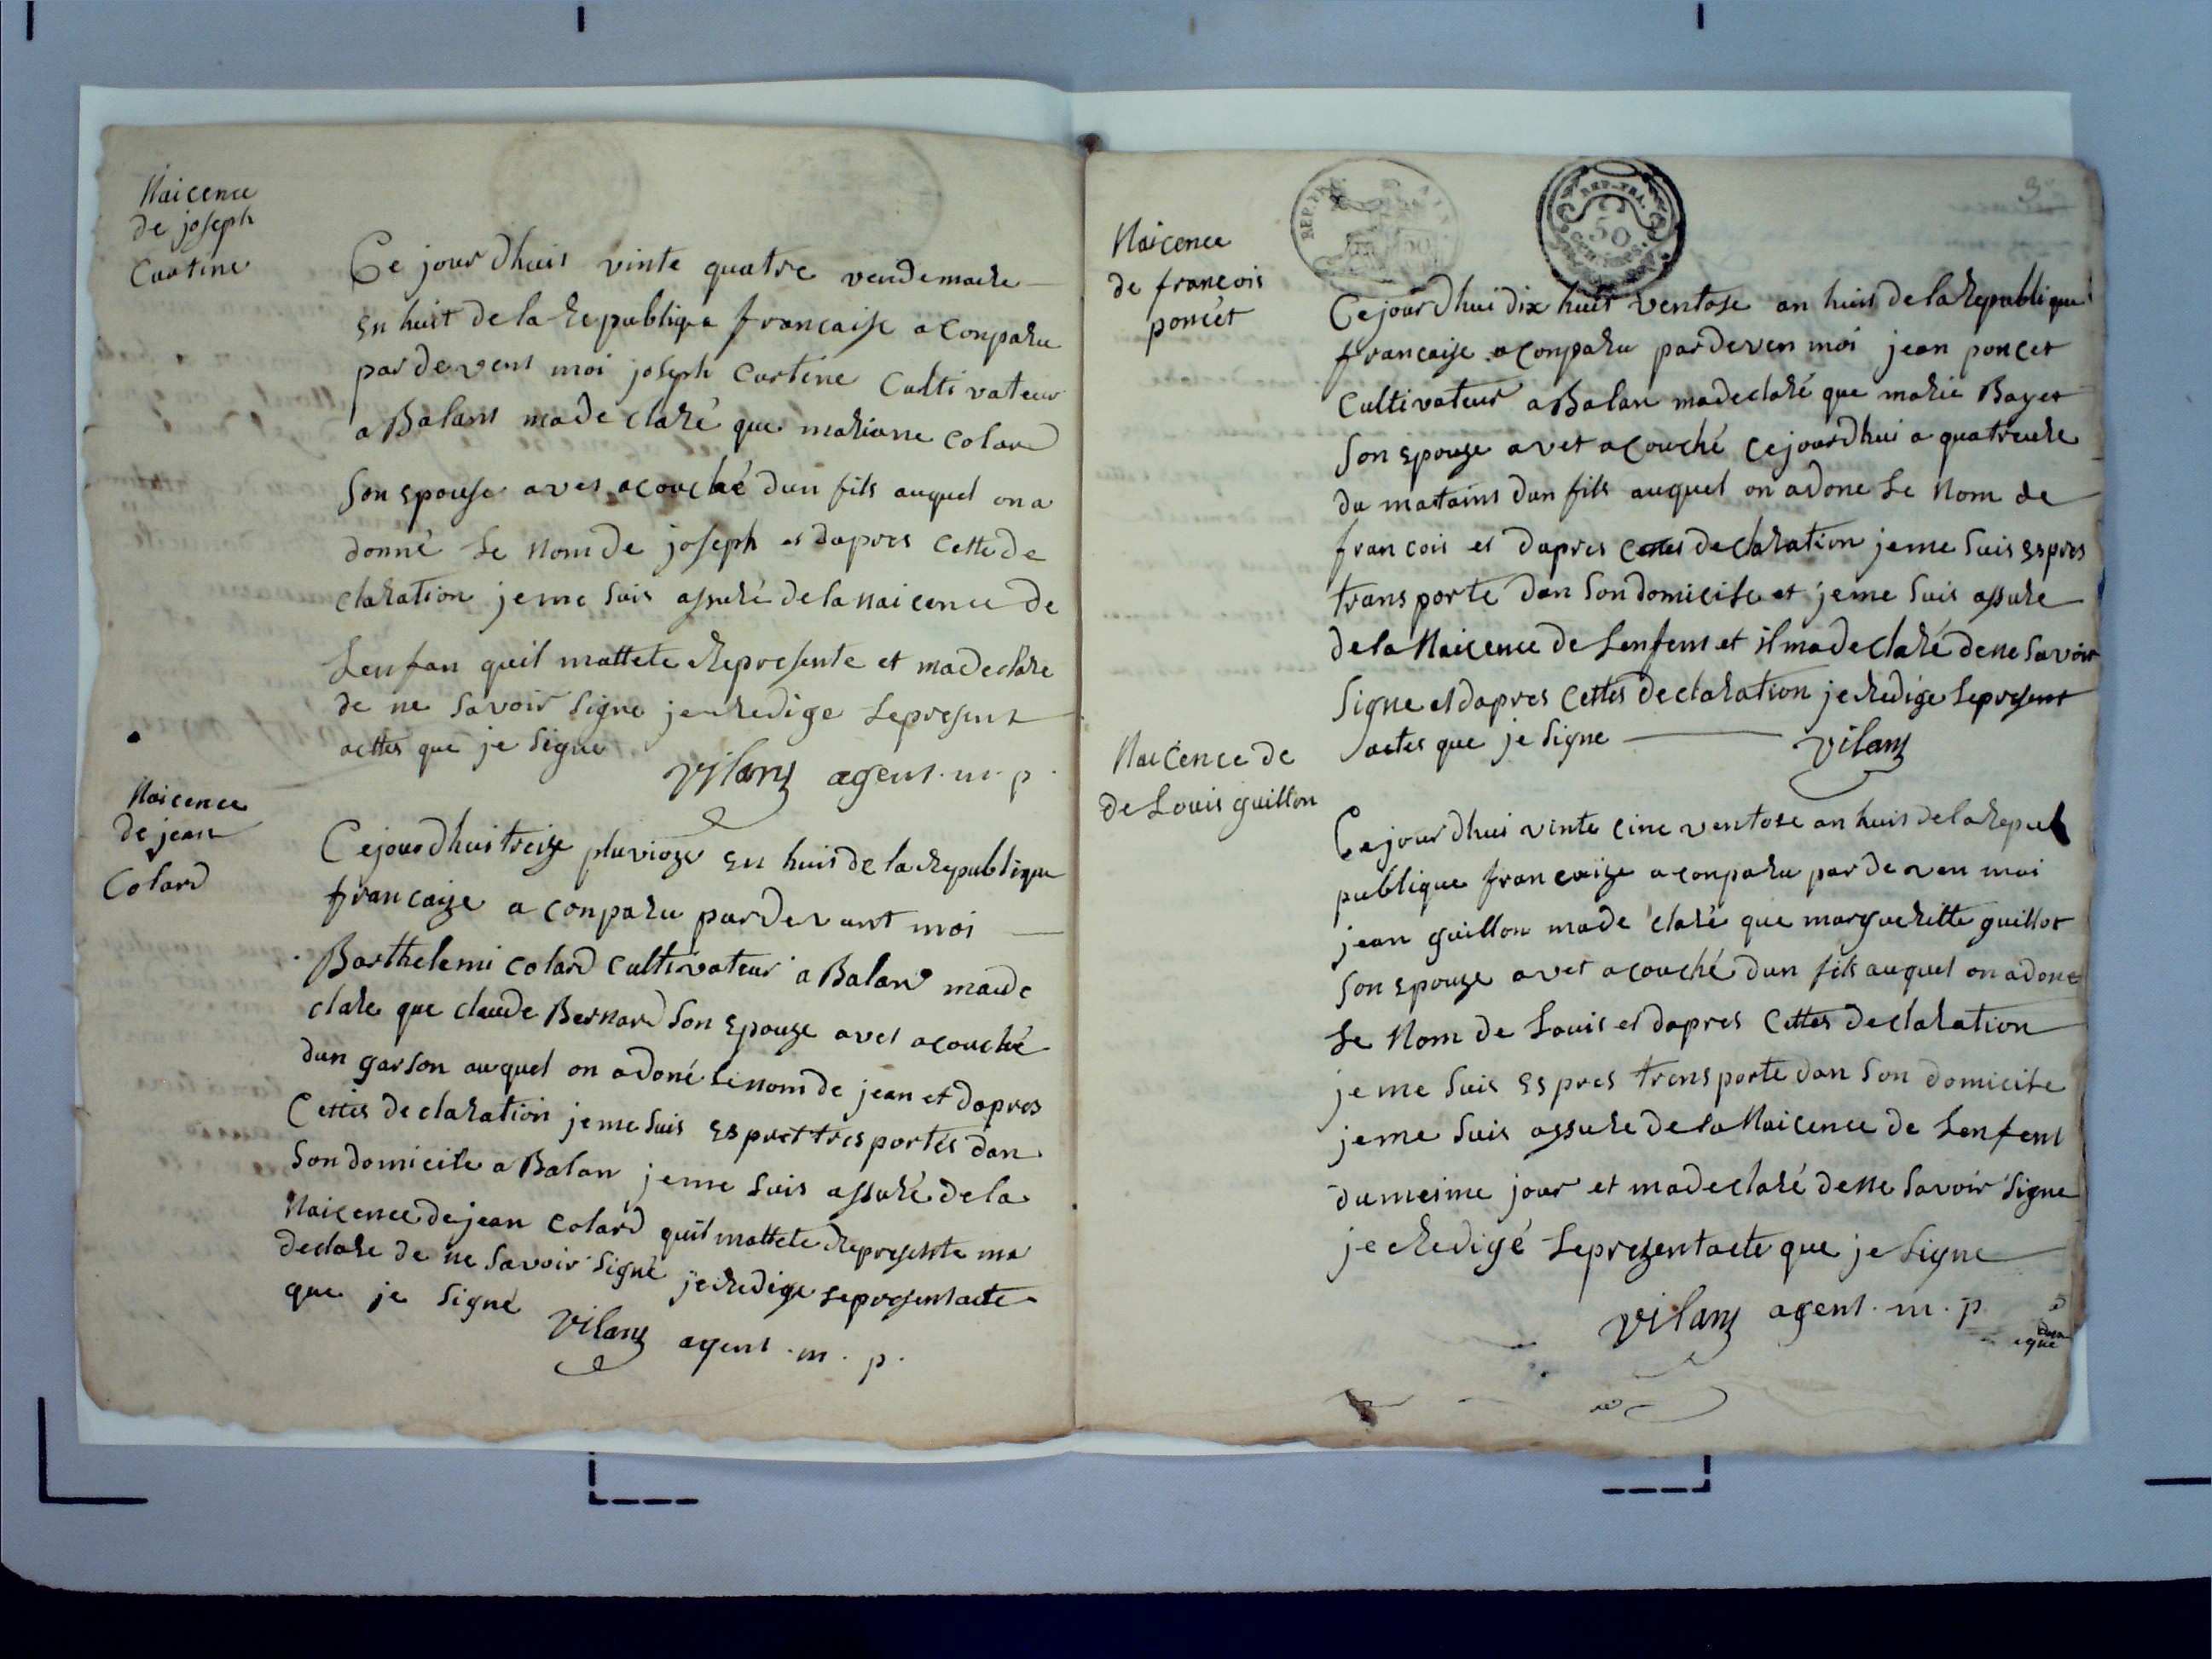 Naicence
de joseph
Cartine
Ce jour dhuis vinte quatre vendemaire
en huit de la Republique francaise a Conparu
par devent moi joseph Cartine Cultivateur
a Balans made claré que mariane Colard
Son epouse avet acouché dun fils auquel on a
donné Le nom de joseph et dapres Cette de
claration jeme Suis assuré de la naicence de
Lenfan queil mattete represente et madeclare
de ne Savoir Signe je redige Lepresent
acttes que je Signe
Vilanz agent . m . p .
Naicence
de jean
Colard
Cejourdhuis treize pluvioze en huis de la Republique
francaize a Conparu pardevant moi
Barthelemi Colard Cultivateur a Balan made
clare que claude Bernard Son epouze avet acouché
dun garson auquel on adoné Lenom de jean et dapres
Cettes declaration jeme Suis espret tresportés dan
Son domicile a Balan jeme Suis assuré de la
Naicence de jean Colard quil mattete represente ma
declare de ne Savoir Signé je redige Lepresentacte
que je Signé
Vilanz agent . m . p .
REP. FRA.
50
Naicence
de francois
poncet
Cejourdhui dix huit ventose an huis de la Republique
francaise aConparu pardeven moi jean poncet
Cultivateur aBalan madeclaré que marie Bayet
Son epouze avet acouché Cejourdhui a quatreure
du matains dun fils auquel on adone Le Nom de
francois et dapres Cettes declaration jeme Suis espres
transporte dan Sondomicile et jeme Suis assure
dela Naicence de Lenfent et ilmadeclaré dene Savoir
Signe et dapres Cettes declaration je redige Lepresent
actes que je Signe
Vilanz
Naicence de
de Louis guillon
Cejourdhui vinte cinc ventose an huis delaRepu
publique francaize aconparu par deven moi
jean guillon made claré que margueritte guillot
Son epouze avet acouché dun fils auquel on adone
Le Nom de Louis et dapres Cettes declaration
jeme Suis espres trensporte dan Son domicile
jeme Suis assure dela Naicence de Lenfent
dumeime jour et madeclaré dene Savoir Signe
je redigé Leprezentacte que je Signe
Vilanz agent . m . p